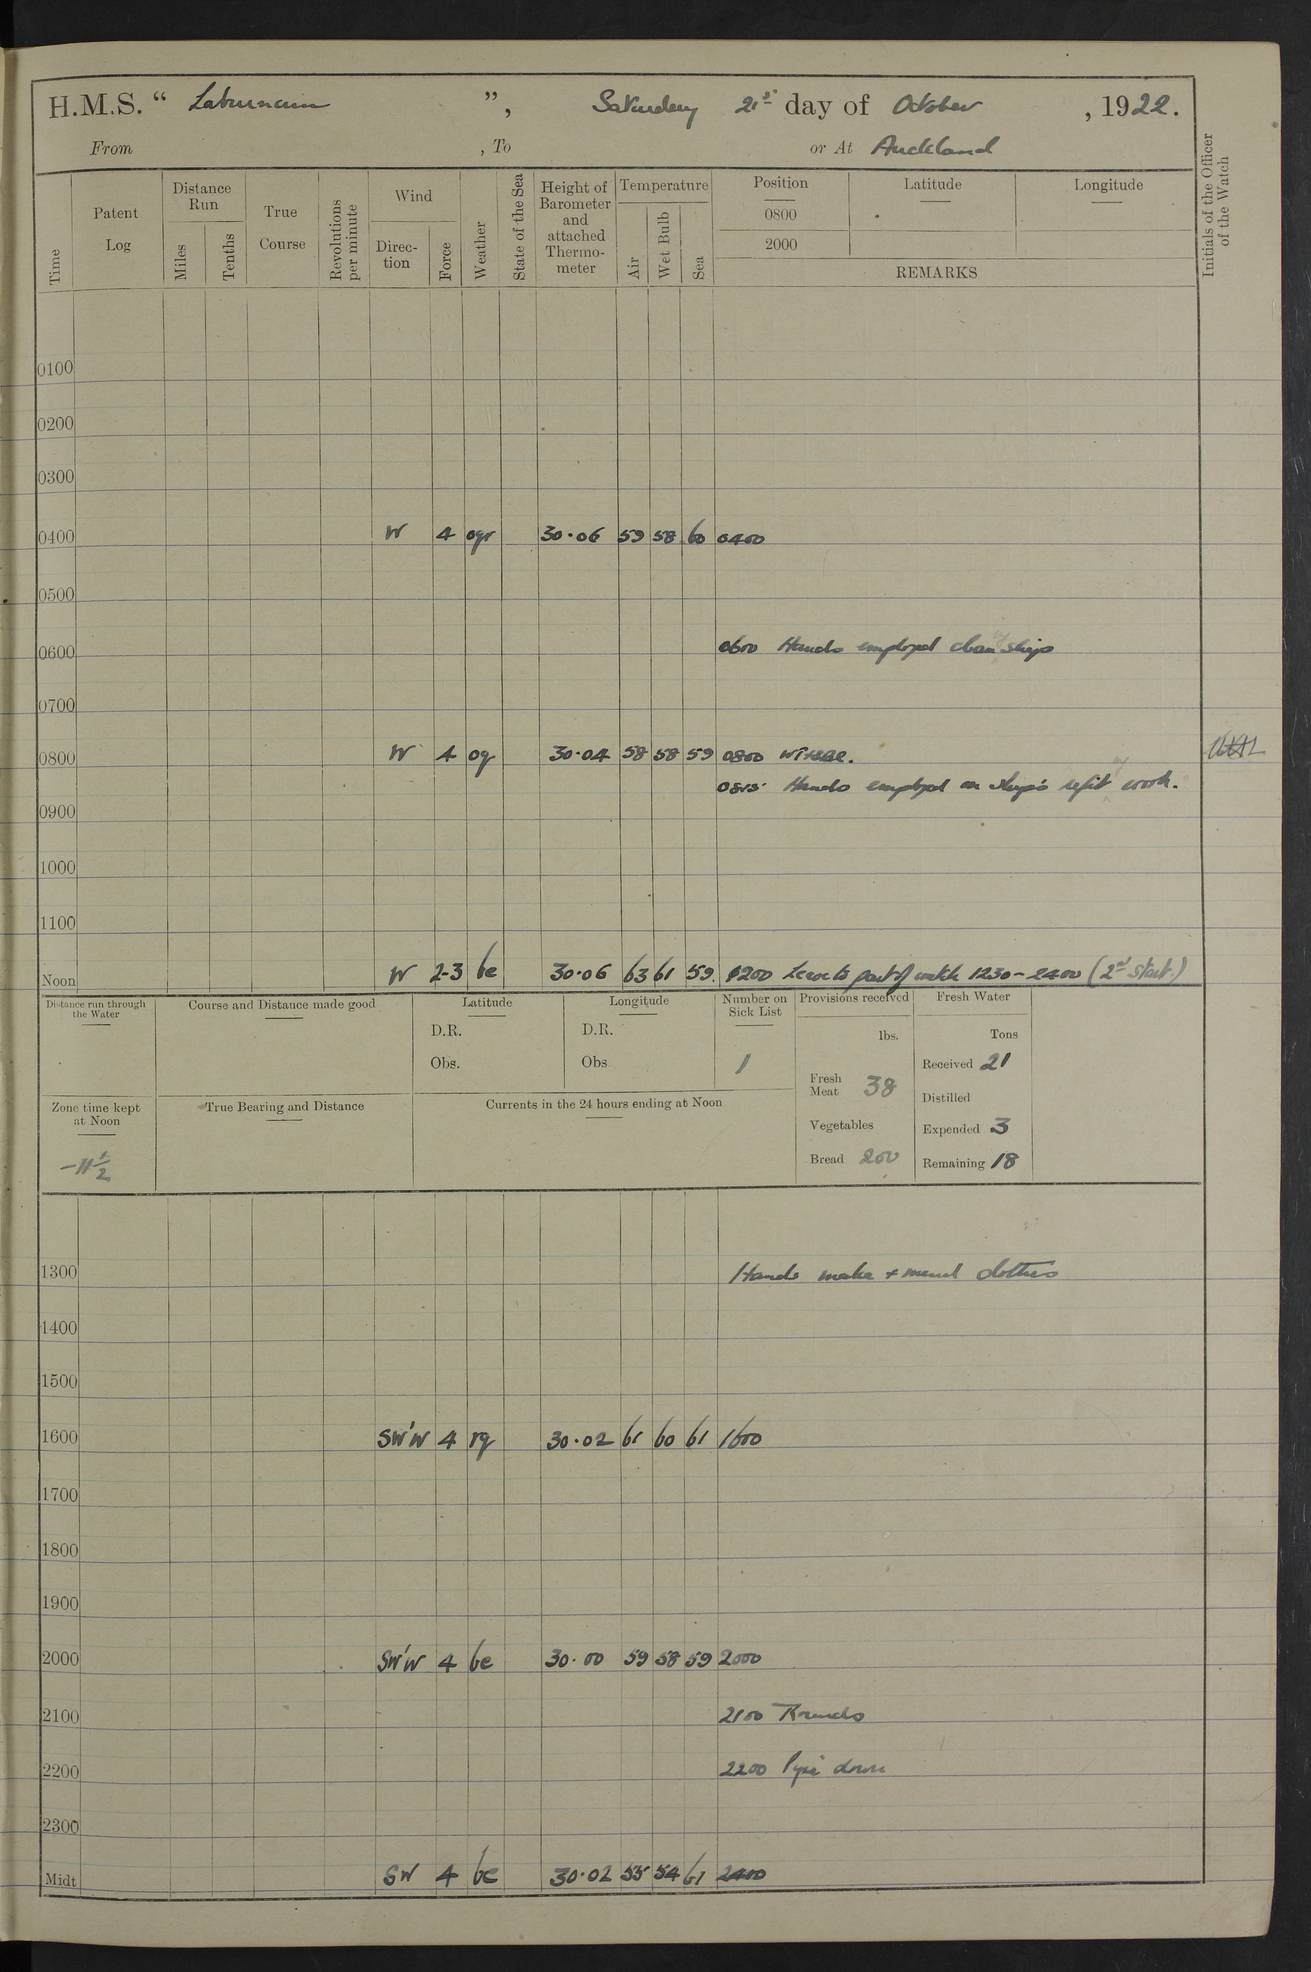 H.M.S. “ Laburnum ”, Saturday 21st day of October, 1922.
From , To or At Auckland
Time
Patent Log
Distance Run
Miles
Tenths
True Course
Revolutions per minute
Wind
Direc-tion
Force
Weather
State of the Sea
Height of Barometer and attached Thermo-meter
Temperature
Air
Wet Bulb
Sea
Position
0800
2000
Latitude
Longitude
REMARKS
Initials of the Officer of the Watch
0100
0200
0300
0400 W 4 ogr 30.06 59 58 60 0400
0500
0600 0600 Hands employed clean ships
0700
0800 W 4 og 30.04 58 58 59 0800
0815 Hands employed on ship's refit work.
0900
1000
1100
Noon W 2-3 bc 30.06 63 61 59. 1200 Leave to part of watch 1230-2400 (2nd Start.)
Distance run through the Water
Course and Distance made good
Latitude
D.R.
Obs.
Longitude
D.R.
Obs
Number on Sick List
1
Provisions received
lbs.
Fresh Meat 38
Vegetables
Bread 200
Fresh Water
Tons
Received 21
Distilled
Expended 3
Remaining 18
Zone time kept at Noon
-11½
True Bearing and Distance
Currents in the 24 hours ending at Noon
1300 Hands make + mend clothes
1400
1500
1600 SW'W 4 rq 30.02 61 60 61 1600
1700
1800
1900
2000 SW'W 4 bc 30.00 59 58 59 2000
2100 2100 Rounds
2200 2200 Pipe down
2300
Midt SW 4 bc 30.02 55 54 61 2400